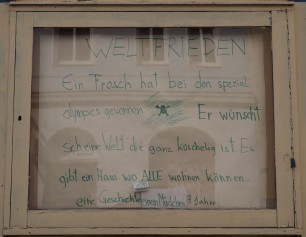 WELTFRIEDEN
Ein Frosch hat bei den spezial
olympics gewonnen Er wünscht
sich eine Welt die ganz kuschelig ist. Es
gibt ein Haus wo ALLE wohnen können...
eine Geschichte von Mädchen 7 Jahre